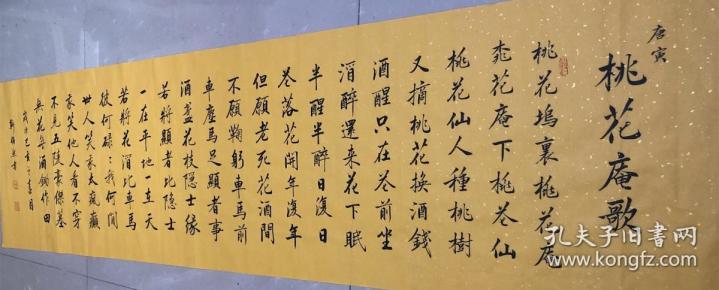 桃花庵歌
唐寅
桃花塢裏桃花庵
桃花庵下桃花仙
桃花仙人種桃樹
又摘桃花換酒錢
酒醒只在花前坐
酒醉還来花下眠
半醒半醉日復日
花落花開年復年
但願老死花酒間
不願鞠躬車馬前
車塵馬足顯者事
酒盞花枝隱士緣
若將顯者比隱士
一在平地一在天
若將花酒比車馬
彼何碌碌我何閒
世人笑我太瘋癲
我笑他人看不穿
不見五陵豪傑墓
無花無酒鋤作田
孔夫子旧書网
www.kongfz.com